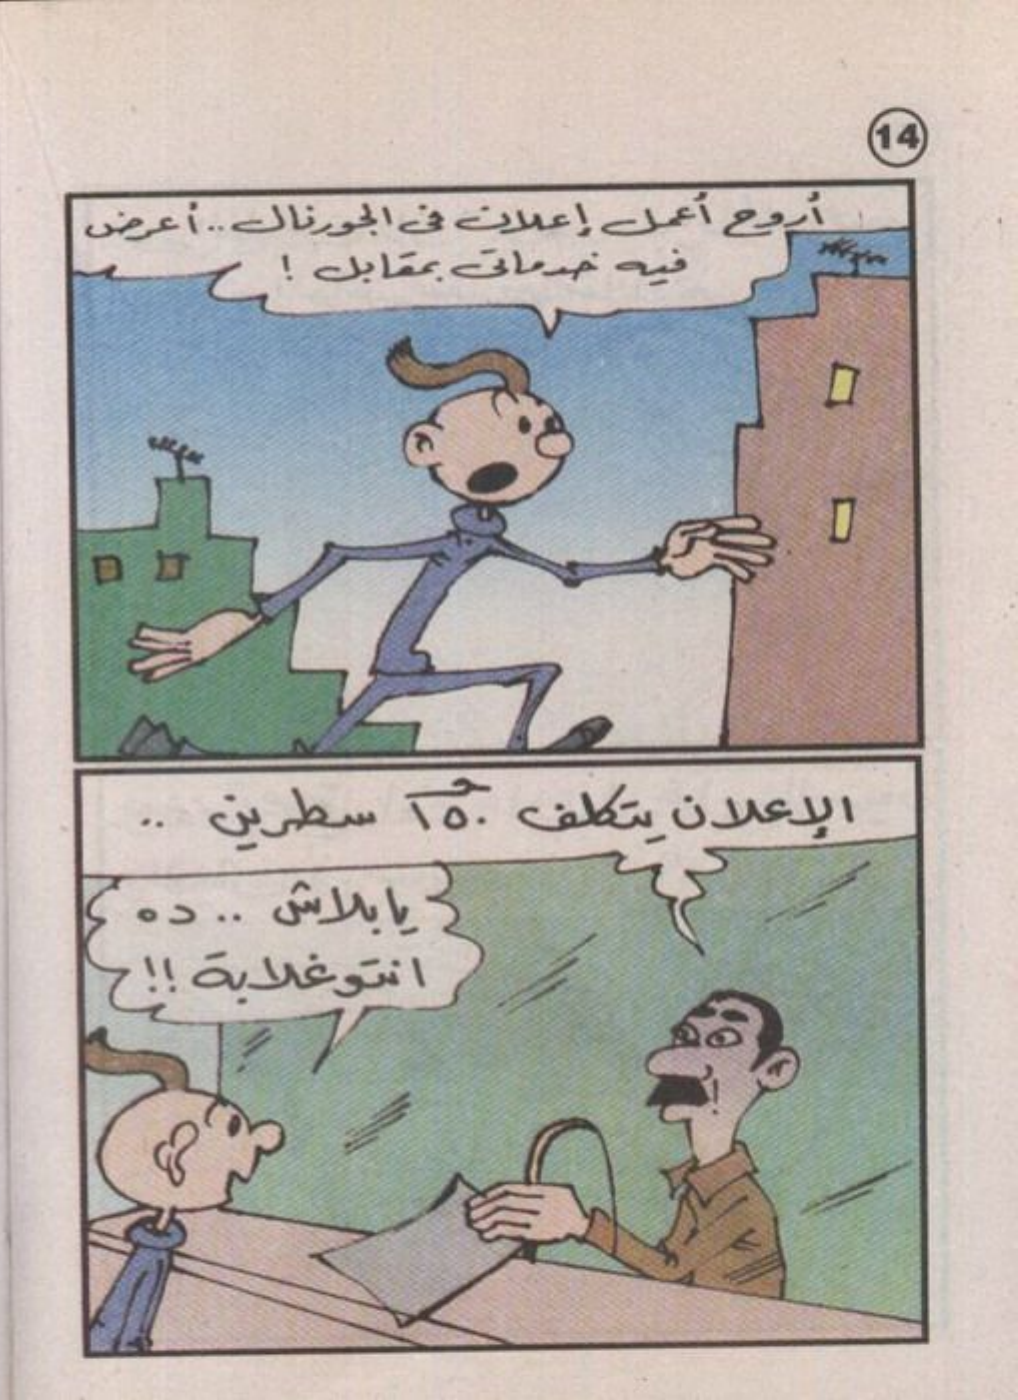 14
أروح أعمل إعلان فى الجورنال .. أعرض
فيه خدماتى بمقابل !
الإعلان يتكلف ١٥٠ جـ سطرين ..
يا بلاش .. ده
انتو غلابة !!